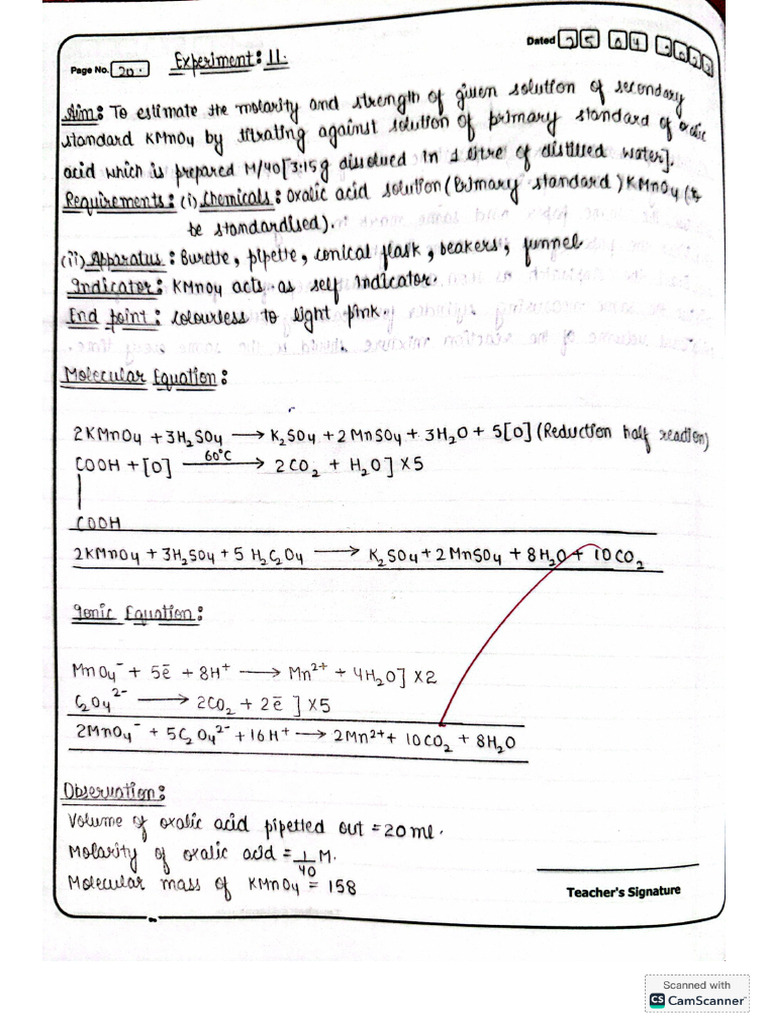 Dated 25 04 2022
Page No. 20.
Experiment: 11.
Aim: To estimate the molarity and strength of given solution of secondary
standard KMnO4 by titrating against solution of primary standard of oxalic
acid which is prepared M/40[3.15g dissolved in 1 litre of distilled water].
Requirements: (i) Chemicals: Oxalic acid solution (Primary standard) KMnO4 (to
be standardised).
(ii) Apparatus: Burette, pipette, conical flask, beakers, funnel
Indicator: KMnO4 acts as self indicator.
End point: colourless to light pink.
Molecular Equation:
2KMnO4 + 3H2SO4 → K2SO4 + 2MnSO4 + 3H2O + 5[O] (Reduction half reaction)
COOH + [O] 60°C → 2CO2 + H2O] X5
|
COOH
2KMnO4 + 3H2SO4 + 5 H2C2O4 → K2SO4 + 2MnSO4 + 8H2O + 10CO2
Ionic Equation:
MnO4⁻ + 5ē + 8H⁺ → Mn²⁺ + 4H2O] X2
C2O4²⁻ → 2CO2 + 2ē ] X5
2MnO4⁻ + 5C2O4²⁻ + 16H⁺ → 2Mn²⁺ + 10CO2 + 8H2O
Observation:
Volume of oxalic acid pipetted out = 20 ml.
Molarity of oxalic acid = 1/40 M.
Molecular mass of KMnO4 = 158
Teacher's Signature
Scanned with
CS CamScanner